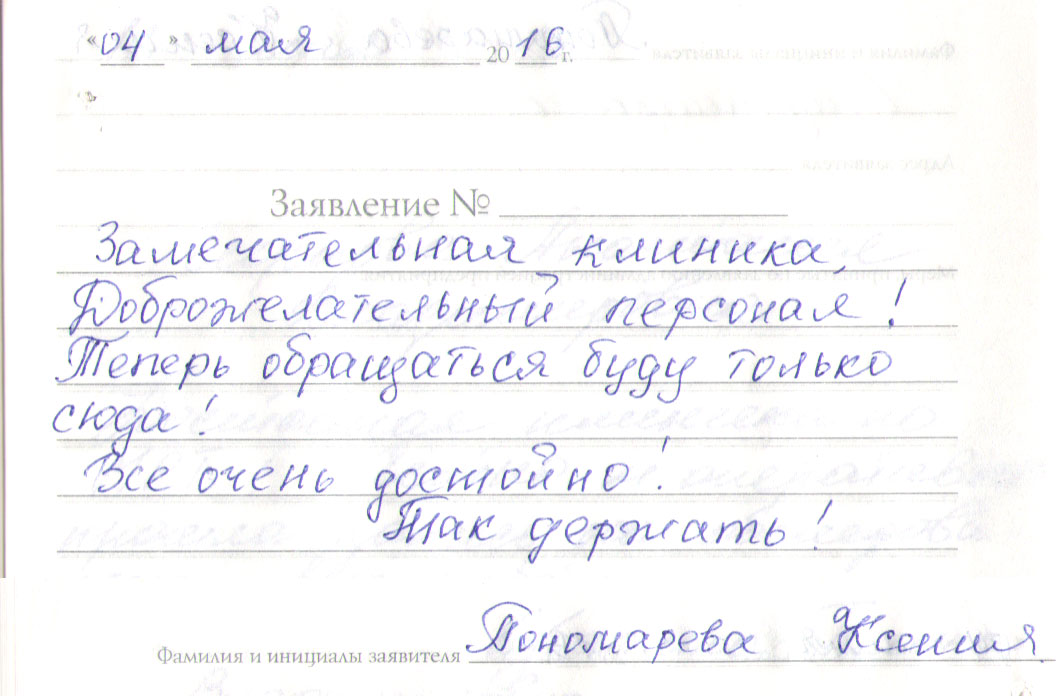 «04» мая 2016 г.
Заявление №
Замечательная клиника,
Доброжелательный персонал!
Теперь обращаться буду только
сюда!
Все очень достойно!
Так держать!
Фамилия и инициалы заявителя Пономарева Ксения